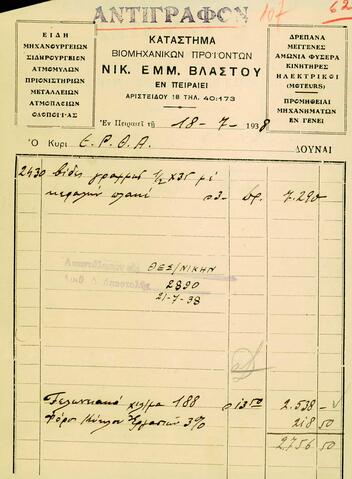 ΑΝΤΙΓΡΑΦΟΝ
107
62
ΕΙΔΗ
ΜΗΧΑΝΟΥΡΓΕΙΩΝ
ΣΙΔΗΡΟΥΡΓΕΙΩΝ
ΑΤΜΟΜΥΛΩΝ
ΠΡΙΟΝΙΣΤΗΡΙΩΝ
ΜΕΤΑΛΛΕΙΩΝ
ΑΤΜΟΠΛΟΙΩΝ
ΟΔΟΠΟΙ·Ι·ΑΣ
ΚΑΤΑΣΤΗΜΑ
ΒΙΟΜΗΧΑΝΙΚΩΝ ΠΡΟΪΟΝΤΩΝ
ΝΙΚ. ΕΜΜ. ΒΛΑΣΤΟΥ
ΕΝ ΠΕΙΡΑΙΕΙ
ΑΡΙΣΤΕΙΔΟΥ 18 ΤΗΛ. 40:173
ΔΡΕΠΑΝΑ
ΜΕΓΓΕΝΕΣ
ΑΜΩΝΙΑ ΦΥΣΕΡΑ
ΚΙΝΗΤΗΡΕΣ
ΗΛΕΚΤΡΙΚΟΙ
(MOTEURS)
ΠΡΟΜΗΘΕΙΑΙ
ΜΗΧΑΝΗΜΑΤΩΝ
ΕΝ ΓΕΝΕΙ
Ἐν Πειραιεῖ τῇ 18-7- 1938
Ὁ Κυρι Ε.Ρ.Θ.Α. ΔΟΥΝΑΙ
2430 βίδες γραμμῆς 1/2 Χ35 μὲ
κεφαλὴν πλακὲ 3- δρ. 7.290
ΘΕΣ/ΝΙΚΗΝ
2890
21-7-38
188 13 50 2.538 -
3% 218 50
2756 50